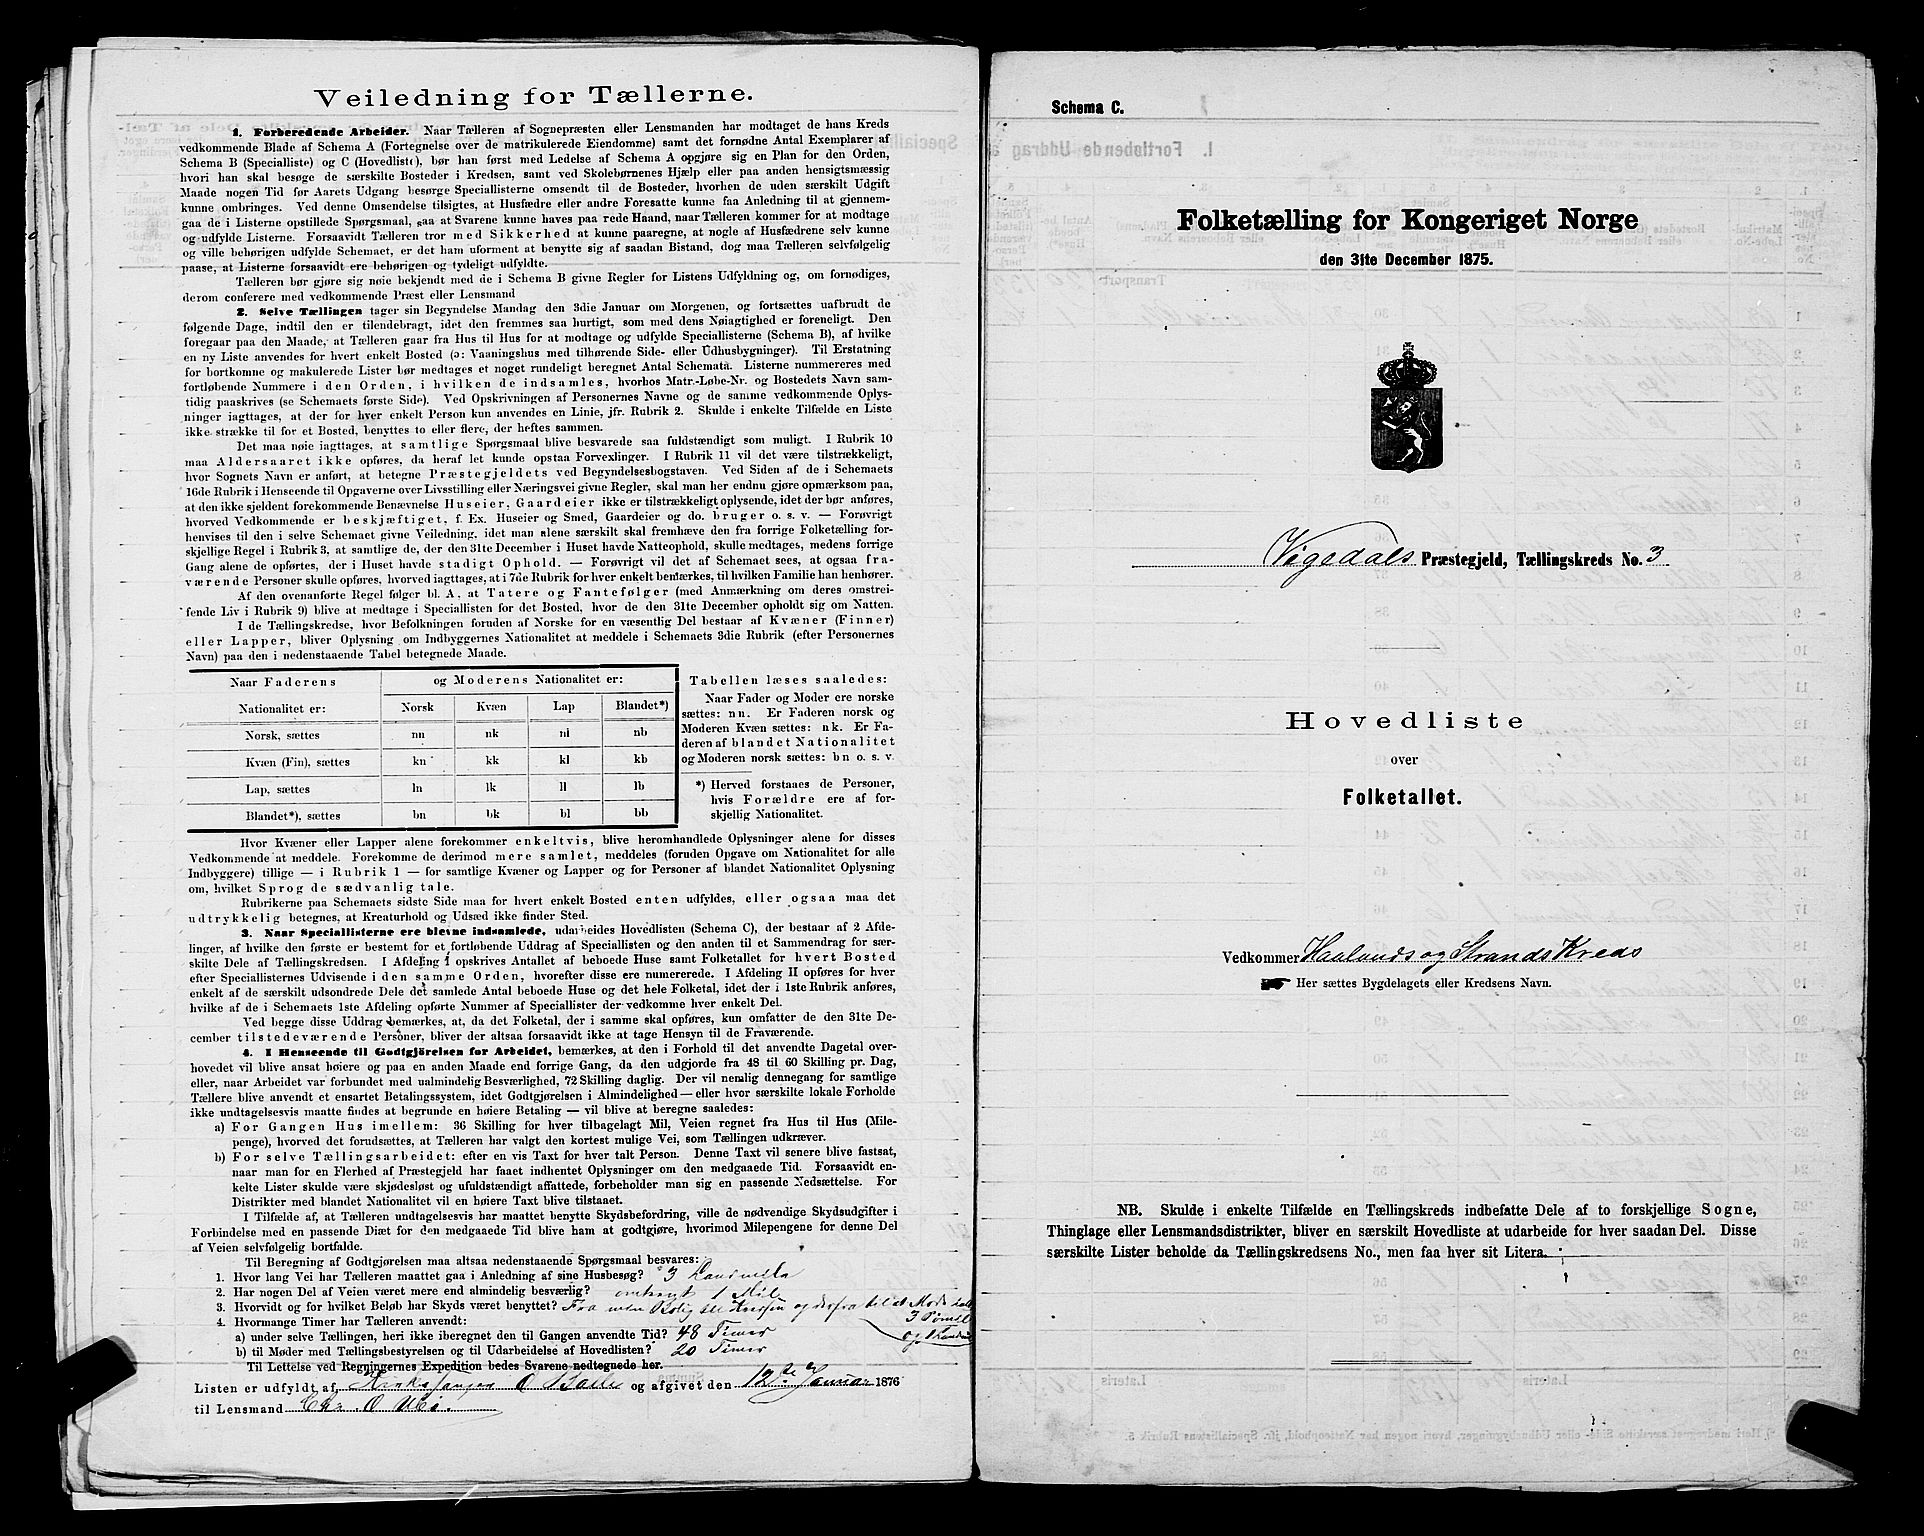 Veiledning for Tællerne.
1. Forberedende Arbeider. Naar Tælleren af Sognepræsten eller Lensmanden har modtaget de hans Kreds
vedkommende Blade af Schema A (Fortegnelse over de matrikulerede Eiendomme) samt det fornødne Antal Exemplarer af
Schema B (Specialliste) og C (Hovedliste), bør han først med Ledelse af Schema A opgjøre sig en Plan for den Orden,
hvori han skal besøge de særskilte Bosteder i Kredsen, samt ved Skolebørnenes Hjælp eller paa anden hensigtsmæssig
Maade nogen Tid før Aarets Udgang besørge Speciallisterne omsendt til de Bosteder, hvorhen de uden særskilt Udgift
kunne ombringes. Ved denne Omsendelse tilsigtes, at Husfædre eller andre Foresatte kunne faa Anledning til at gjennem-
gaa de i Listerne opstillede Spørgsmaal, saa at Svarene kunne haves paa rede Haand, naar Tælleren kommer for at modtage
og udfylde Listerne. Forsaavidt Tælleren tror med Sikkerhed at kunne paaregne, at nogle af Husfædrene selv kunne
og ville behørigen udfylde Schemaet, er det ham uforment at benytte sig af saadan Bistand, dog maa Tælleren selvfølgelig
paase, at Listerne forsaavidt ere behørigen og tydeligt udfyldte.
Tælleren bør gjøre sig nøie bekjendt med de i Schema B givne Regler for Listens Udfyldning og, om fornødiges,
derom conferere med vedkommende Præst eller Lensmand
2. Selve Tællingen tager sin Begyndelse Mandag den 3die Januar om Morgenen, og fortsættes uafbrudt de
følgende Dage, indtil den er tilendebragt, idet den fremmes saa hurtigt, som med dens Nøiagtighed er foreneligt. Den
foregaar paa den Maade, at Tælleren gaar fra Hus til Hus for at modtage og udfylde Speciallisterne (Schema B), af hvilke
en ny Liste anvendes for hvert enkelt Bosted (ɔ: Vaaningshus med tilhørende Side- eller Udhusbygninger). Til Erstatning
for bortkomne og makulerede Lister bør medtages et noget rundeligt beregnet Antal Schemata. Listerne nummereres med
fortløbende Nummere i den Orden, i hvilken de indsamles, hvorhos Matr.-Løbe-Nr. og Bostedets Navn sam-
tidig paaskrives (se Schemaets første Side). Ved Opskrivningen af Personernes Navne og de samme vedkommende Oplys-
ninger iagttages, at der for hver enkelt Person kun anvendes en Linie, jfr. Rubrik 2. Skulde i enkelte Tilfælde en Liste
ikke strække til for et Bosted, benyttes to eller flere, der heftes sammen.
Det maa nøie iagttages, at samtlige Spørgsmaal blive besvarede saa fuldstændigt som muligt. I Rubrik 10
maa Aldersaaret ikke opføres, da heraf let kunde opstaa Forvexlinger. I Rubrik 11 vil det være tilstrækkeligt,
hvor Sognets Navn er anført, at betegne Præstegjeldets ved Begyndelsesbogstaven. Ved Siden af de i Schemaets
16de Rubrik i Henseende til Opgaverne over Livsstilling eller Næringsvei givne Regler, skal man her endnu gjøre opmærksom paa,
at den ikke sjeldent forekommende Benævnelse Huseier, Gaardeier ikke er tilstrækkeligt oplysende, idet der bør anføres,
hvorved Vedkommende er beskjæftiget, f. Ex. Huseier og Smed, Gaardeier og do. bruger o. s. v. — Forøvrigt
henvises til den i selve Schemaet givne Veiledning, idet man alene særskilt skal fremhæve den fra forrige Folketælling for-
skjellige Regel i Rubrik 3, at samtlige de, der den 31te December i Huset havde Natteophold, skulle medtages, medens forrige
Gang alene de opførtes, der i Huset havde stadigt Ophold. — Forøvrigt vil det af Schemaet sees, at ogsaa fra-
værende Personer skulle opføres, hvorved iagttages, at i 7de Rubrik for hver enkelt bemærkes, til hvilken Familie han henhører.
Af den ovenanførte Regel følger bl. A., at Tatere og Fantefølger (med Anmærkning om deres omstrei-
fende Liv i Rubrik 9) blive at medtage i Speciallisten for det Bosted, hvor de den 31te December opholdt sig om Natten.
I de Tællingskredse, hvor Befolkningen foruden af Norske for en væsentlig Del bestaar af Kvæner (Finner)
eller Lapper, bliver Oplysning om Indbyggernes Nationalitet at meddele i Schemaets 3die Rubrik (efter Personernes
Navn) paa den i nedenstaaende Tabel betegnede Maade.
Naar Faderens og Moderens Nationalitet er:
Nationalitet er: Norsk Kvæn Lap Blandet*)
Norsk, sættes nn nk nl nb
Kvæn (Fin), sættes kn kk kl kb
Lap, sættes ln lk ll lb
Blandet*), sættes bn bk bl bb
Tabellen læses saaledes:
Naar Fader og Moder ere norske
sættes: nn. Er Faderen norsk og
Moderen Kvæn sættes: nk. Er Fa-
deren af blandet Nationalitet
og Moderen norsk sættes: bn o. s. v.
*) Herved forstaaes de Personer,
hvis Forældre ere af for-
skjellig Nationalitet.
Hvor Kvæner eller Lapper alene forekommer enkeltvis, blive heromhandlede Oplysninger alene for disses
Vedkommende at meddele. Forekomme de derimod mere samlet, meddeles (foruden Opgave om Nationalitet for alle
Indbyggere) tillige — i Rubrik 1 — for samtlige Kvæner og Lapper og for Personer af blandet Nationalitet Oplysning
om, hvilket Sprog de sædvanlig tale.
Rubrikerne paa Schemaets sidste Side maa for hvert enkelt Bosted enten udfyldes, eller ogsaa maa det
udtrykkelig betegnes, at Kreaturhold og Udsæd ikke finder Sted.
3. Naar Speciallisterne ere blevne indsamlede, udarbeides Hovedlisten (Schema C), der bestaar af 2 Afde-
linger, af hvilke den første er bestemt for et fortløbende Uddrag af Speciallisten og den anden til et Sammendrag for sær-
skilte Dele af Tællingskredsen. I Afdeling I opskrives Antallet af beboede Huse samt Folketallet for hvert Bosted
efter Speciallisternes Udvisende i den samme Orden, hvorefter disse ere nummererede. I Afdeling II opføres for hver
enkelt af de særskilt udsondrede Dele det samlede Antal beboede Huse og det hele Folketal, idet der i 1ste Rubrik anføres,
hvilke af de i Schemaets 1ste Afdeling opførte Nummer af Speciallister der vedkomme hver enkelt Del.
Ved begge disse Uddrag bemærkes, at, da det Folketal, der i samme skal opføres, kun omfatter de den 31te De-
cember tilstedeværende Personer, bliver der altsaa forsaavidt ikke at tage Hensyn til de Fraværende.
4. I Henseende til Godtgjörelsen for Arbeidet, bemærkes, at den i Forhold til det anvendte Dagetal over-
hovedet vil blive ansat høiere og paa en anden Maade end forrige Gang, da den udgjorde fra 48 til 60 Skilling pr. Dag,
eller, naar Arbeidet var forbundet med ualmindelig Besværlighed, 72 Skilling daglig. Der vil nemlig dennegang for samtlige
Tællere blive anvendt et ensartet Betalingssystem, idet Godtgjørelsen i Almindelighed — eller hvor særskilte lokale Forholde
ikke undtagelsesvis maatte findes at begrunde en høiere Betaling — vil blive at beregne saaledes:
a) For Gangen Hus imellem: 36 Skilling for hver tilbagelagt Mil, Veien regnet fra Hus til Hus (Mile-
penge), hvorved det forudsættes, at Tælleren har valgt den kortest mulige Vei, som Tællingen udkræver.
b) For selve Tællingsarbeidet: efter en vis Taxt for hver talt Person. Denne Taxt vil senere blive fastsat,
naar man for en Flerhed af Præstegjeld har faaet indhentet Oplysninger om den medgaaede Tid. Forsaavidt en-
kelte Lister skulde være skjødesløst og ufuldstændigt affattede, forbeholder man sig en passende Nedsættelse. For
Distrikter med blandet Nationalitet vil en høiere Taxt blive tilstaaet.
I Tilfælde af, at Tælleren undtagelsesvis har maattet benytte Skydsbefordring, ville de nødvendige Skydsudgifter i
Forbindelse med en passende Diæt for den medgaaede Tid blive ham at godtgjøre, hvorimod Milepengene for denne Del
af Veien selvfølgelig bortfalde.
Til Beregning af Godtgjørelsen maa altsaa nedenstaaende Spørgsmaal besvares:
1. Hvor lang Vei har Tælleren maattet gaa i Anledning af sine Husbesøg? 3 Landmile
2. Har nogen Del af Veien været mere end almindelig besværlig? omtrent 1 Mil
3. Hvorvidt og for hvilket Beløb har Skyds været benyttet? Fra min Bolig til
4. Hvormange Timer har Tælleren anvendt:
a) under selve Tællingen, heri ikke iberegnet den til Gangen anvendte Tid? 48 Timer
b) til Møder med Tællingsbestyrelsen og til Udarbeidelse af Hovedlisten? 20 Timer
Til Lettelse ved Regningernes Expedition bedes Svarene nedtegnede her.
Listen er udfyldt af Kirkesanger O og afgivet den 12te Januar 1876
til Lensmand Chr. O
Schema C.
Folketælling for Kongeriget Norge
den 31te December 1875.
Vigedals Præstegjeld, Tællingskreds No. 3
Hovedliste
over
Folketallet.
Vedkommer Haalands og Strands Kreds
Her sættes Bygdelagets eller Kredsens Navn.
NB. Skulde i enkelte Tilfælde en Tællingskreds indbefatte Dele af to forskjellige Sogne,
Thinglage eller Lensmandsdistrikter, bliver en særskilt Hovedliste at udarbeide for hver saadan Del. Disse
særskilte Lister beholde da Tællingskredsens No., men faa hver sit Litera.